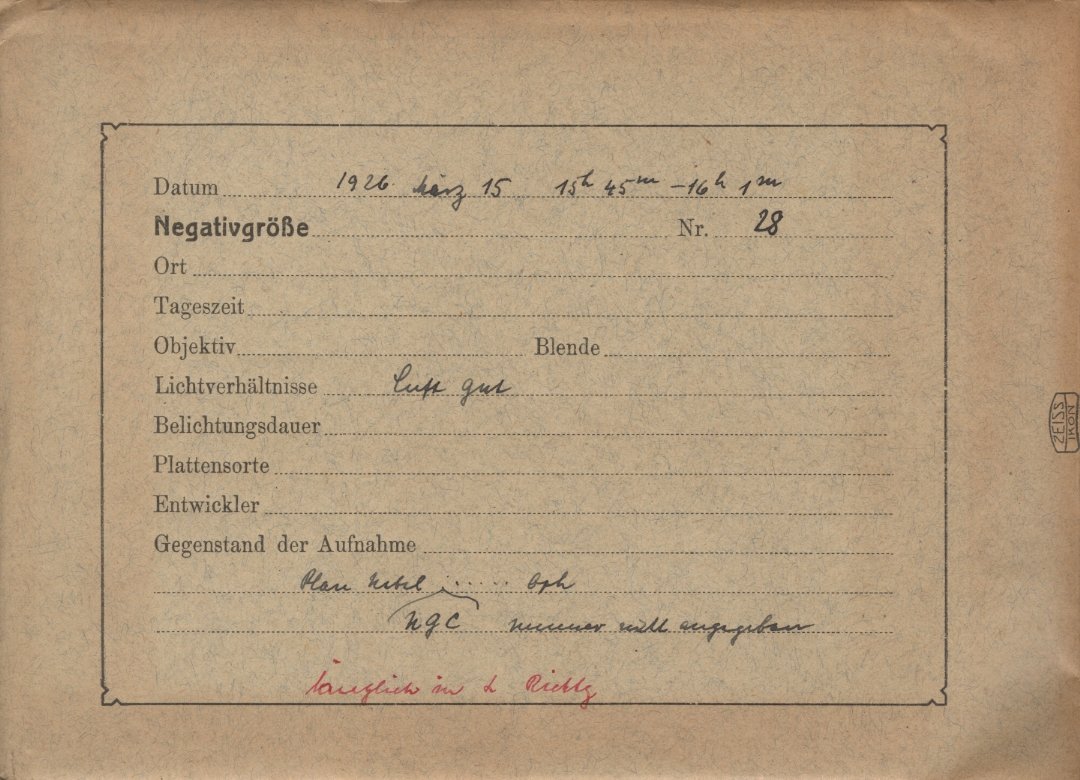 Datum 1926 März 15 15h 45m – 16h 1m
Negativgröße Nr. 28
Ort
Tageszeit
Objektiv Blende
Lichtverhältnisse Luft gut
Belichtungsdauer
Plattensorte
Entwickler
Gegenstand der Aufnahme
Plan Nebel ...... Oph
NGC nummer nicht angegeben
länglich in Richtg
ZEISS IKON